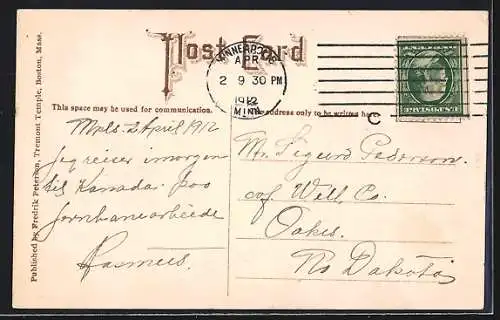 Published by Fredrik Peterson, Tremont Temple, Boston, Mass.
Post Card
MINNEAPOLIS
APR
2 9 30 PM
1912
MINN.
C
This space may be used for communication.
The address only to be written here.
Mpls. 2 April 1912
Jeg reiser imorgen
til Kanada. paa
jernbanearbeide
Rasmus.
Mr. Sigurd Pederson.
of Well Co.
Oakes.
No Dakota.